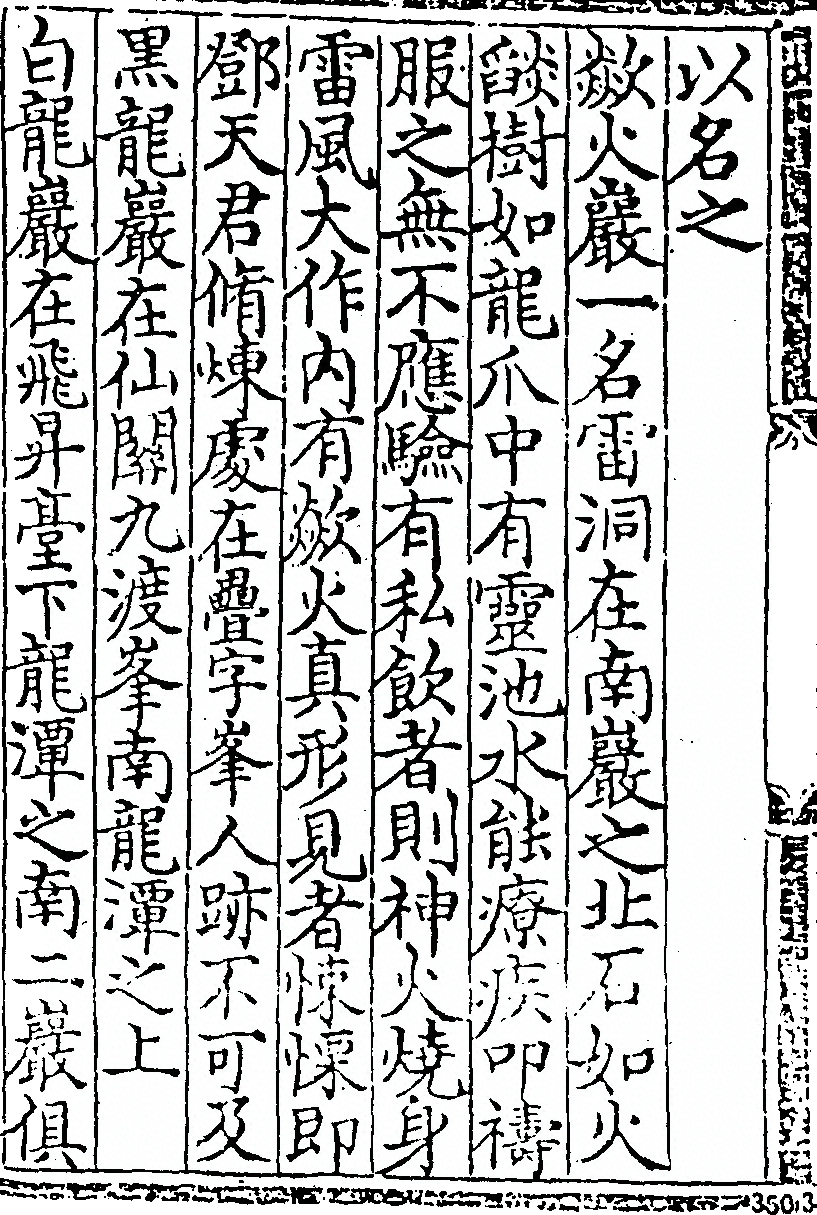 以名之
歘火巖一名雷洞在南巖之北石如火
燄樹如龍爪中有靈池水能療疾叩禱
服之無不應驗有私飲者則神火燒身
雷風大作內有歘火真形見者悚慄即
鄧天君脩煉處在疊字峯人跡不可及
黑龍巖在仙關九渡峯南龍潭之上
白龍巖在飛昇臺下龍潭之南二巖俱
350,3